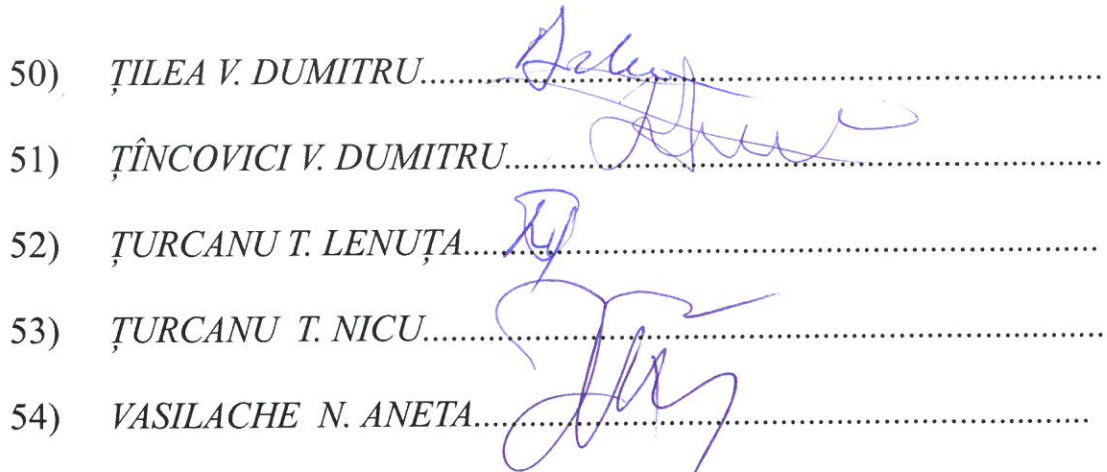 50) ȚILEA V. DUMITRU....................................................
51) ȚÎNCOVICI V. DUMITRU....................................................
52) ȚURCANU T. LENUȚA....................................................
53) ȚURCANU T. NICU....................................................
54) VASILACHE N. ANETA....................................................